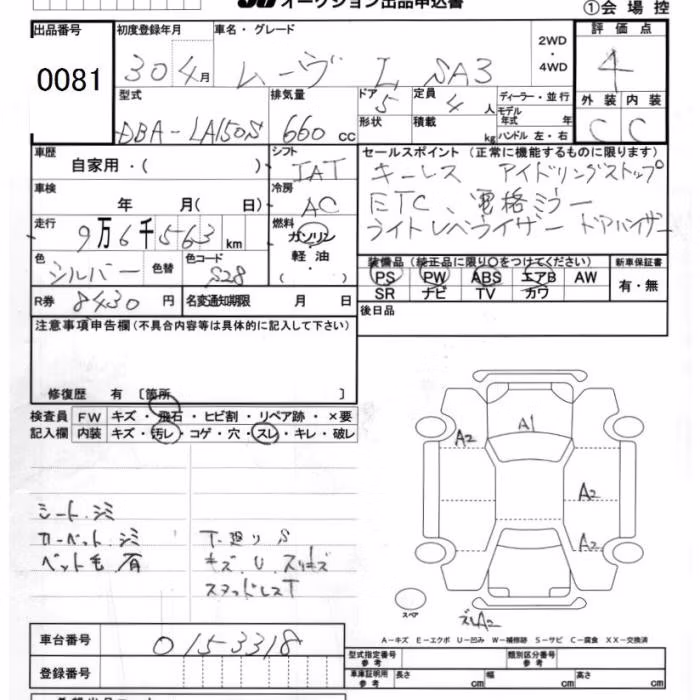 オークション出品申込書
①会場控
出品番号
0081
初度登録年月
30 4月
車名・グレード
ムーヴ L SA3
2WD
・
4WD
評価点
4
外装 内装
C C
型式
DBA-LA150S
排気量
660 cc
ドア
5
定員
4 人
形状
積載
kg
ディーラー・並行
モデル年式 年
ハンドル 左・右
車歴
自家用・( )
車検
年 月( 日)
走行
9万6千563 km
色
シルバー
色替
色コード
S28
シフト
IAT
冷房
AC
燃料
ガソリン
軽油
( )
セールスポイント (正常に機能するものに限ります)
キーレス アイドリングストップ
ETC、電格ミラー
ライトレベライザー ドアバイザー
装備品(純正品に限り○をつけてください)
PS PW ABS エアB AW
SR ナビ TV カワ
新車保証書
有・無
R券 8430 円
名変通知期限 月 日
後日品
注意事項申告欄(不具合内容等は具体的に記入して下さい)
修復歴 有 [箇所 ]
検査員記入欄
FW キズ・飛石・ヒビ割・リペア跡・×要
内装 キズ・汚レ・コゲ・穴・スレ・キレ・破レ
シート.シミ
カーペット.シミ
ペット毛 有
下廻りS
キズ.U.スリキズ
スタッドレスT
A1
A2
A2
A2
スペア
ズレA2
A-キズ E-エクボ U-凹み W-補修跡 S-サビ C-腐食 XX-交換済
車台番号
0153318
登録番号
型式指定番号
参考
類別区分番号
参考
車庫証明用
参考
長さ cm 幅 cm 高さ cm